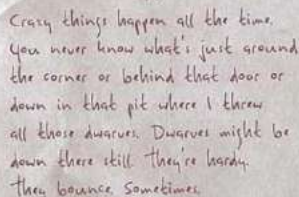 Crazy things happen all the time.
You never know what's just around
the corner or behind that door or
down in that pit where I threw
all those dwarves. Dwarves might be
down there still. They're hardy.
They bounce. Sometimes.